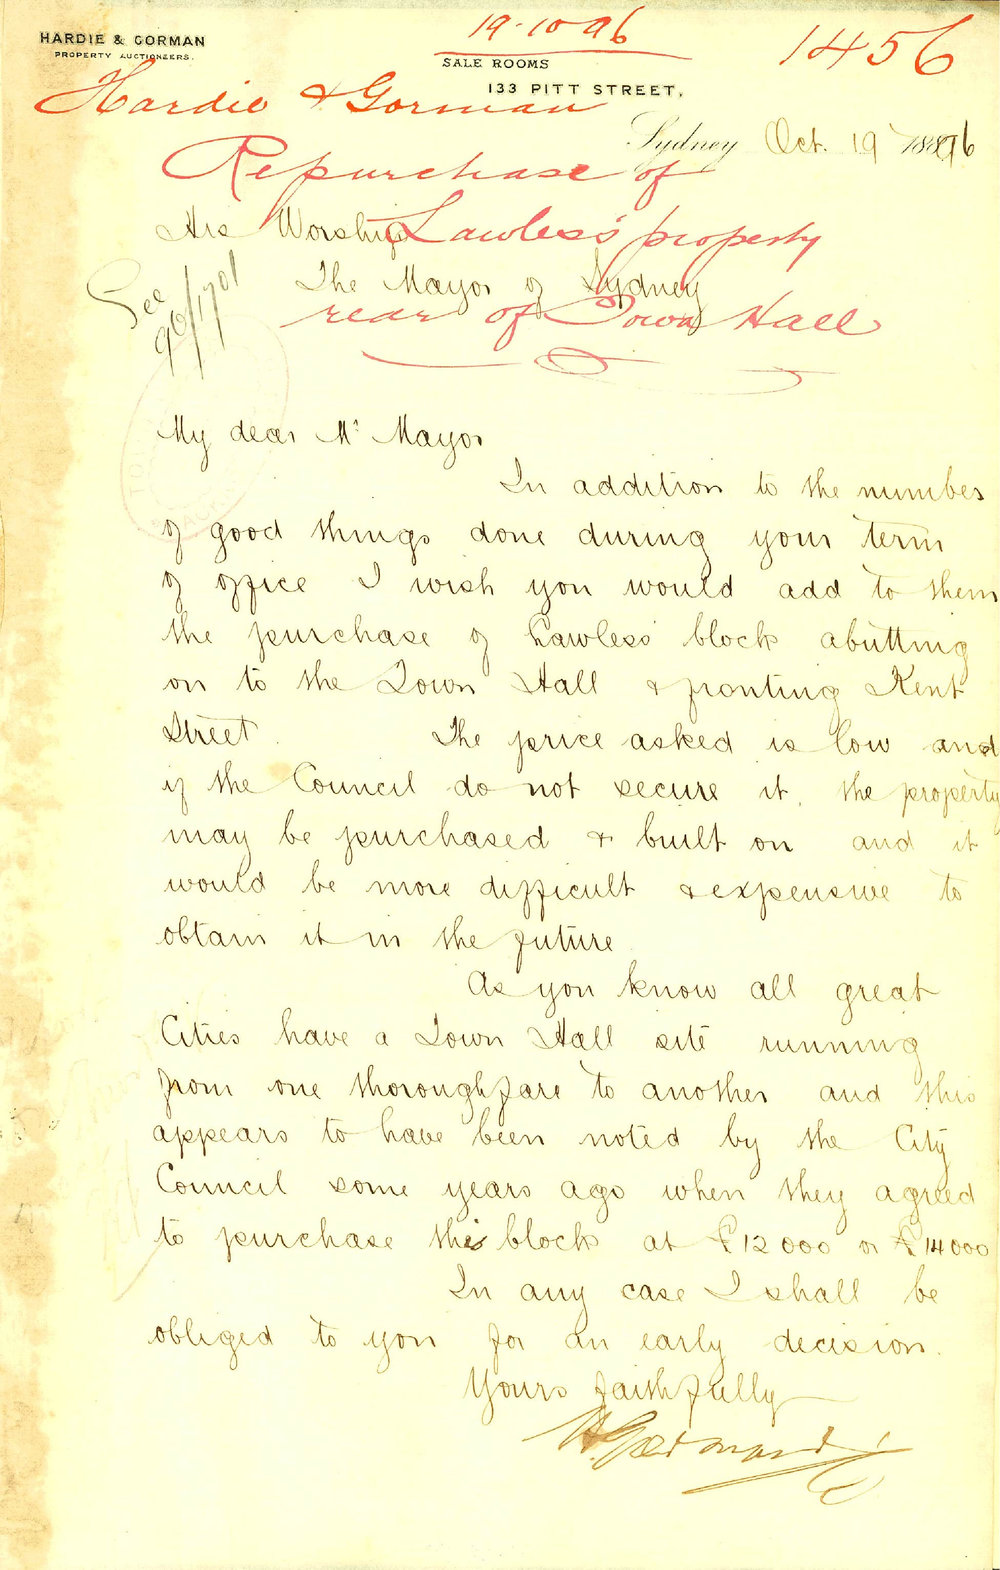 19-10-96
1456
HARDIE & GORMAN
PROPERTY AUCTIONEERS.
SALE ROOMS
133 PITT STREET,
Hardie & Gorman
Sydney Oct. 19 1896
Repurchase of
His Worship
Lawless's property
The Mayor of Sydney
rear of Town Hall
See
96/1701
My dear Mr Mayor
In addition to the number
of good things done during your term
of office I wish you would add to them
the purchase of Lawless' block abutting
on to the Town Hall & fronting Kent
Street. The price asked is low and
if the Council do not secure it, the property
may be purchased & built on and it
would be more difficult & expensive to
obtain it in the future
As you know all great
Cities have a Town Hall site running
from one thoroughfare to another and this
appears to have been noted by the City
Council some years ago when they agreed
to purchase this block at £12000 or £14000
In any case I shall be
obliged to you for an early decision.
Yours faithfully